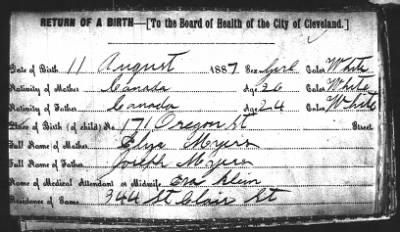 RETURN OF A BIRTH—[To the Board of Health of the City of Cleveland.]
Date of Birth 11 August 1887 Sex Girl Color White
Nativity of Mother Canada Age 36 Color White
Nativity of Father Canada Age 24 Color White
Place of Birth (of child) No 171 Oregon St Street
Full Name of Mother Eliza Myers
Full Name of Father Joseph Myers
Name of Medical Attendant or Midwife Eva Klein
Residence of Same 344 St Clair St